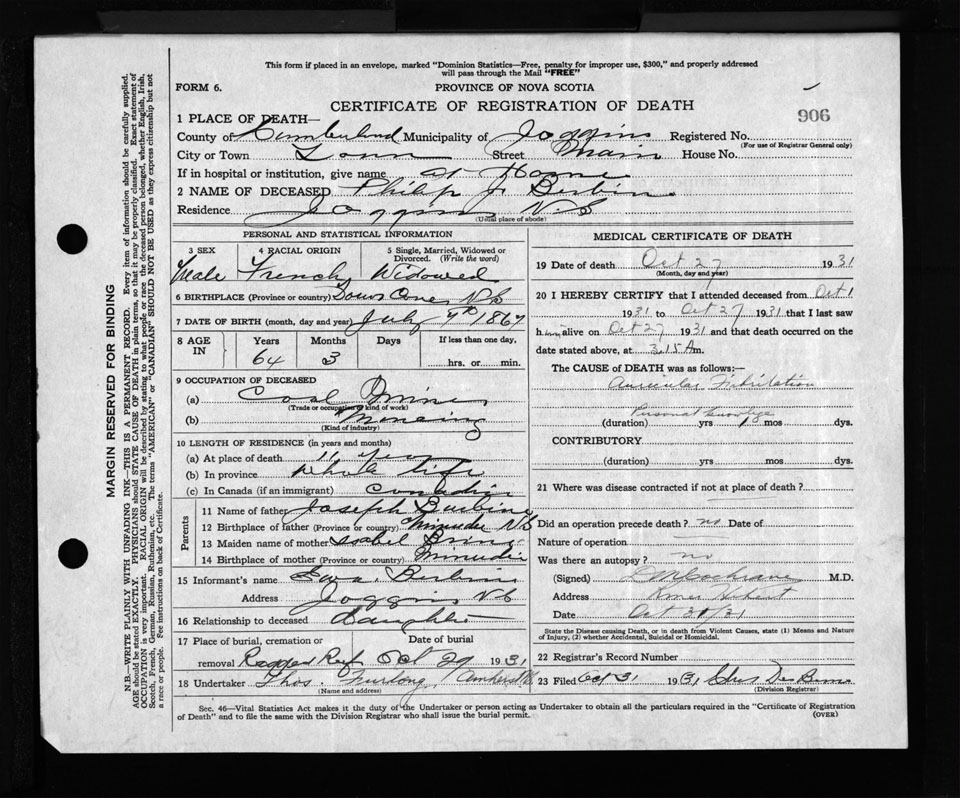 This form if placed in an envelope, marked "Dominion Statistics—Free, penalty for improper use, $300," and properly addressed
will pass through the Mail "FREE"
FORM 6. PROVINCE OF NOVA SCOTIA
CERTIFICATE OF REGISTRATION OF DEATH
906
1 PLACE OF DEATH—
County of Cumberland Municipality of Joggins Registered No.
(For use of Registrar General only)
City or Town Town Street Main House No.
If in hospital or institution, give name at Home
2 NAME OF DECEASED Philip J Burbine
Residence Joggins N.S
(Usual place of abode)
PERSONAL AND STATISTICAL INFORMATION
3 SEX 4 RACIAL ORIGIN 5 Single, Married, Widowed or
Divorced. (Write the word)
Male French Widowed
6 BIRTHPLACE (Province or country) N.S.
7 DATE OF BIRTH (month, day and year) July 7th 1867
8 AGE IN Years Months Days If less than one day,
64 3 hrs. or min.
9 OCCUPATION OF DECEASED
(a) Coal Miner
(Trade or occupation or kind of work)
(b) Mineing
(Kind of industry)
10 LENGTH OF RESIDENCE (in years and months)
(a) At place of death 11 years
(b) In province whole life
(c) In Canada (if an immigrant) Canadian
Parents
11 Name of father Joseph Burbine
12 Birthplace of father (Province or country) Minudie N.S
13 Maiden name of mother Isabel Brine
14 Birthplace of mother (Province or country) Minudie
15 Informant's name Burbine
Address Joggins N.S
16 Relationship to deceased Daughter
17 Place of burial, cremation or Date of burial
removal Ragged Reef Oct 29 1931
18 Undertaker Thos. Furlong, Amherst N.S
(Name and address)
MEDICAL CERTIFICATE OF DEATH
19 Date of death Oct 27 1931
(Month, day and year)
20 I HEREBY CERTIFY that I attended deceased from Oct 1
1931 to Oct 27 1931 that I last saw
him alive on Oct 27 1931 and that death occurred on the
date stated above, at 3.15 Am.
The CAUSE of DEATH was as follows:—
Auricular Fibrilation
Personal knowlege
(duration) yrs 1 mos dys.
CONTRIBUTORY
(duration) yrs. mos. dys.
21 Where was disease contracted if not at place of death?
Did an operation precede death? no Date of
Nature of operation
Was there an autopsy? no
(Signed) Cochrane M.D.
Address River Hebert
Date Oct 31/31
State the Disease causing Death, or in death from Violent Causes, state (1) Means and Nature
of Injury, (2) whether Accidental, Suicidal or Homicidal.
22 Registrar's Record Number
23 Filed Oct 31 1931
(Division Registrar)
Sec. 46—Vital Statistics Act makes it the duty of the Undertaker or person acting as Undertaker to obtain all the particulars required in the "Certificate of Registration
of Death" and to file the same with the Division Registrar who shall issue the burial permit. (OVER)
MARGIN RESERVED FOR BINDING
N.B.—WRITE PLAINLY WITH UNFADING INK—THIS IS A PERMANENT RECORD. Every item of information should be carefully supplied.
AGE should be stated EXACTLY. PHYSICIANS should STATE CAUSE OF DEATH in plain terms, so that it may be properly classified. Exact statement of
OCCUPATION is very important. RACIAL ORIGIN will be described by stating to what people or race the deceased person belonged, whether English, Irish,
Scotch, French, German, Russian, Ruthenian, etc. The terms "AMERICAN" or "CANADIAN" SHOULD NOT BE USED as they express citizenship but not
a race or people. See instructions on back of Certificate.